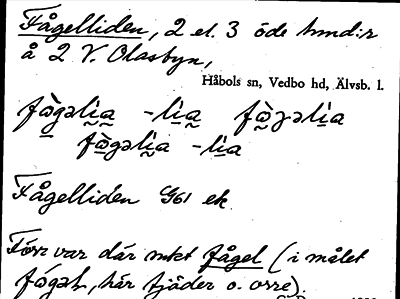 Fågelliden, 2 el. 3 öde hmd:r
å 2 V. Olasbyn,
Håbols sn, Vedbo hd, Älvsb. l.
fò̱gəli̱a̱ -li̱a̱ fò̱gəli̱a
fò̱gəli̱a -li̱a
Fågelliden G61 ek.
Förr var där mkt fågel (i målet
här fjäder o. orre).